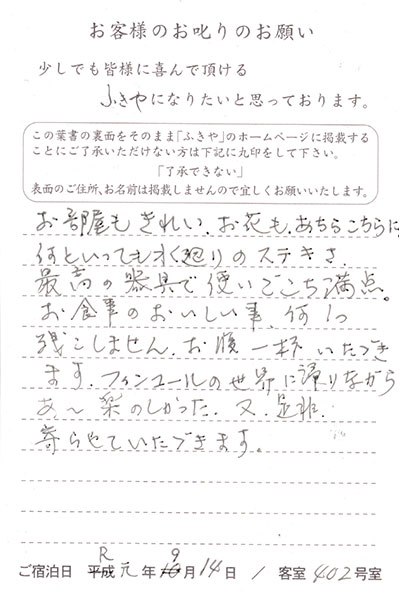 お客様のお叱りのお願い
少しでも皆様に喜んで頂ける
ふきやになりたいと思っております。
この葉書の裏面をそのまま「ふきや」のホームページに掲載する
ことにご了承いただけない方は下記に丸印をして下さい。
「了承できない」
表面のご住所、お名前は掲載しませんので宜しくお願いいたします。
お部屋もきれい、お花も、あちらこちらに
何といっても水廻りのステキさ、
最高の器具で使いごこち満点。
お食事のおいしい事、何1つ
残こしません、お腹一杯いたづき
ます、フィンコールの世界に帰りながら
あ〜楽のしかった、又、是非、
寄らせていたづきます。
R 9
ご宿泊日 平成元年10月14日 / 客室402号室